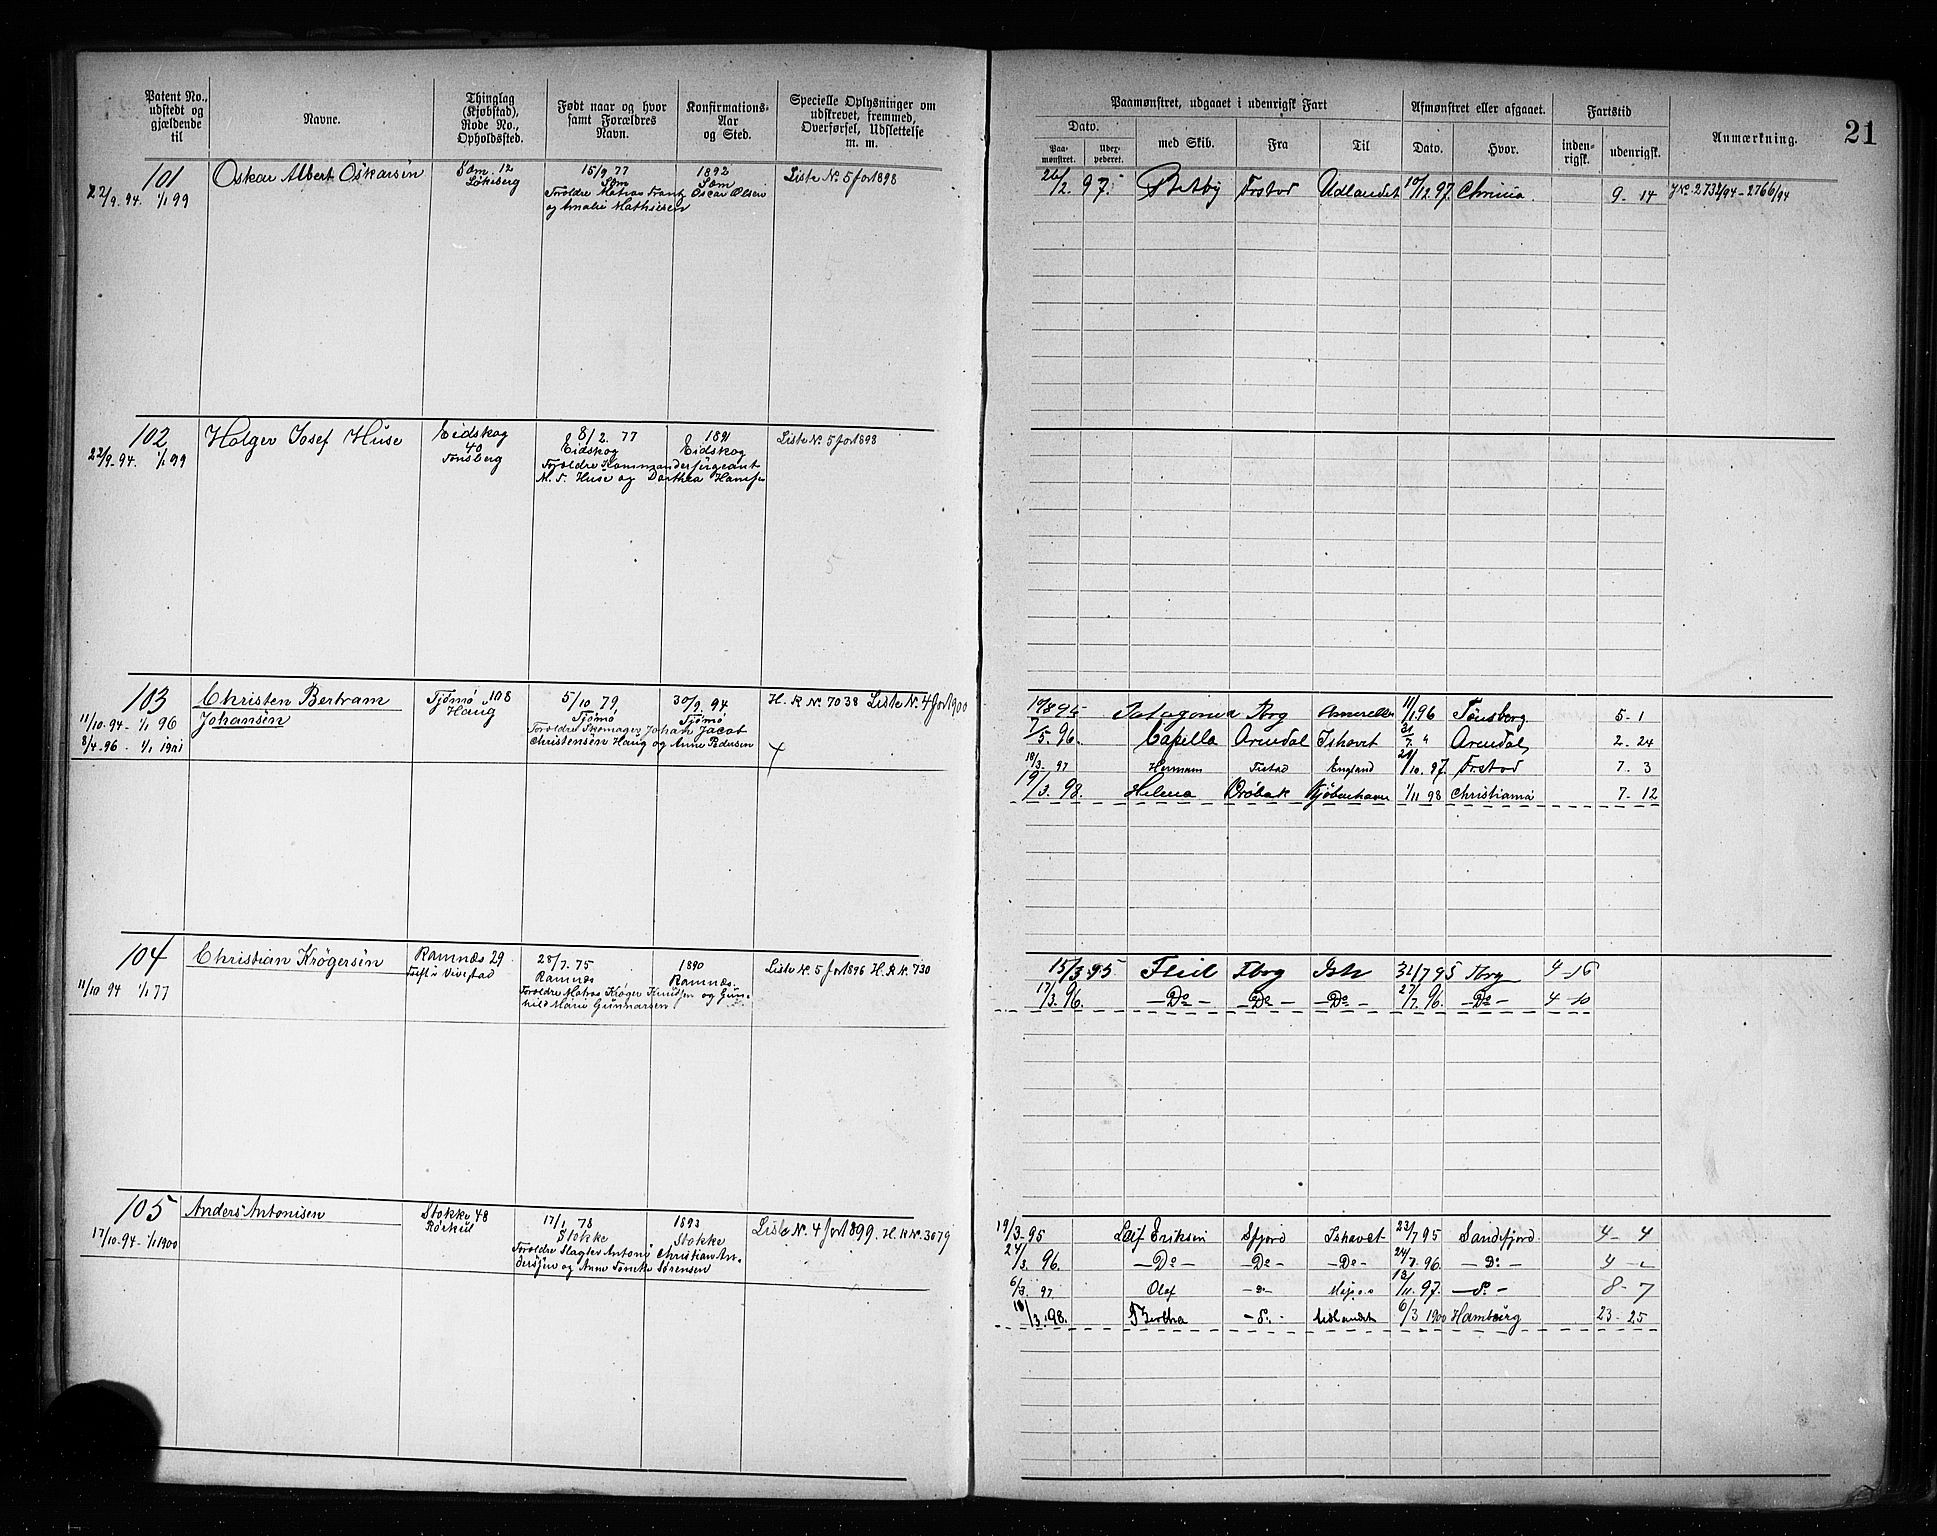 Patent No., udstedt og gjældende til
Navne.
Thinglag (Kjøbstad), Rode No., Opholdssted.
Født naar og hvor samt Forældres Navn.
Konfirmations-Aar og Sted.
Specielle Oplysninger om udskrevet, fremmed, Overførsel, Udslettelse m. m.
Paamønstret, udgaaet i udenrigsk Fart
Dato.
Paa-mønstret.
Uder-pederet.
med Skib.
Fra
Til
Afmønstret eller afgaaet.
Dato.
Hvor.
Fartstid
inden-rigsk.
udenrigsk.
Anmærkning.
21
101
22/9. 94. 1/1 99
Oskar Albert Oskarsen
Sæm. 12
15/9. 77
Sæm
Forældre Matros
og Amalie Mathisen
1892
Sæm
Oscar Olsen
Liste No. 5 for 1898
26/2. 97.
Betby
Frstad
Udlandet
10/12. 97.
Chrnia.
9 - 14
JNo. 2732/94 - 2766/94
102
22/9. 94. 1/1 99
Holger Josef Huse
Eidskog
40
Tønsberg
8/2. 77
Eidskog
Forældre Kommandersergeant
M. T. Huse og Dorthea Hansen
1891
Eidskog
Liste No. 5 for 1898
103
11/10. 94 - 1/1 96
8/4. 96. - 1/1 1901
Christen Bertram
Johansen
Tjømø 108
Haug
5/10. 79.
Tjømø
Forældre Skomager Johan Jacob
Christensen Haug og Anne Pedersen
30/9. 94
Tjømø
H. R. No. 7038 Liste No. 4 for 1900
19/8 95
Patagonia
Tbrg
11/1. 96
Tønsberg
5 - 1
7/5. 96.
Capella
Arendal
Ishavet
31/7. "
Arendal
2 - 24
18/3. 97
Hermann
Frstad
England
21/10. 97.
Frstad
7. 3
19/3. 98.
Helena
Drøbak
Kjøbenhavn
1/11 98
Christiania
7 - 12
104
11/10 94 1/1 77
Christian Krøgersen
Ramnæs 29
Vivestad
28/7. 75
Ramnæs
Forældre Matros Krøger Knudsen og Gun-
hild Marie Gunnarsen
1890
Ramnæs.
Liste No. 5 for 1896 H. R. No. 730
15/3. 95
Tbrg
Ish
31/7 95
Tbrg
4 - 16
17/3. 96.
- Do -
- Do -
- Do -
27/7. 96.
- Do -
4 - 10
105
17/10. 94 - 1/1 1900
Anders Antonisen
Stokke 48
Rørkul
17/1. 78
Stokke
Forældre Slagter Antoni
Andersen og Anne Tomine Sørensen
1893
Stokke
Christian An-
Liste No. 4 for 1899. H. R. No. 3679
19/3. 95
Leif Eriksen
Sfjord
Ishavet
23/7 95
Sandefjord
4 - 4
24/3. 96.
- Do -
- Do -
- Do -
24/7. 96.
- Do -
6/3. 97
Olaf
- do -
13/11. 97.
- do -
8 - 7
18/3. 98.
Bertha
- do -
Udlandet
6/3 1900
Hamburg
23 - 25